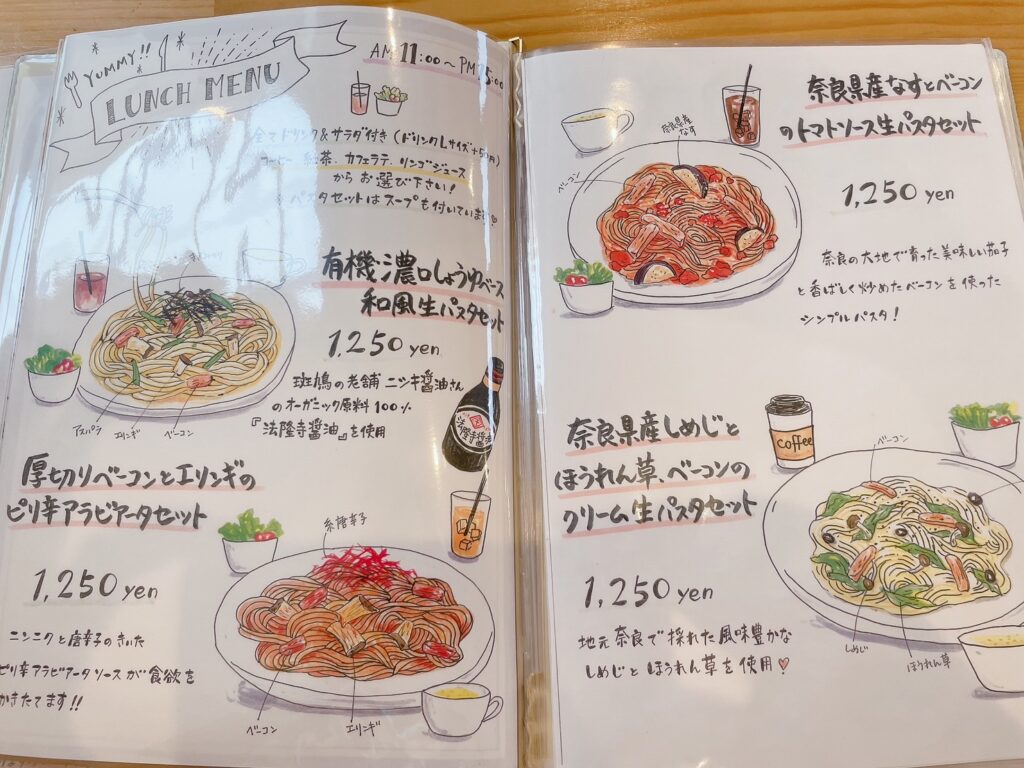 YUMMY!!
LUNCH MENU
AM 11:00 ~ PM 5:00
全てドリンク&サラダ付き(ドリンクLサイズ+50円)
コーヒー、紅茶、カフェラテ、リンゴジュース
からお選び下さい!
※パスタセットはスープも付いています♡
有機濃口しょうゆベース
和風生パスタセット
1,250 yen
斑鳩の老舗 ニシキ醤油さん
のオーガニック原料100%
『法隆寺醤油』を使用
法隆寺醤油
アスパラ
エリンギ
ベーコン
厚切りベーコンとエリンギの
ピリ辛アラビアータセット
1,250 yen
ニンニクと唐辛子のきいた
ピリ辛アラビアータソースが食欲を
かきたてます!!
糸唐辛子
ベーコン
エリンギ
奈良県産なすとベーコン
のトマトソース生パスタセット
1,250 yen
奈良の大地で育った美味しい茄子
と香ばしく炒めたベーコンを使った
シンプルパスタ!
奈良県産
なす
ベーコン
奈良県産しめじと
ほうれん草、ベーコンの
クリーム生パスタセット
1,250 yen
地元奈良で採れた風味豊かな
しめじとほうれん草を使用♡
coffee
ベーコン
しめじ
ほうれん草